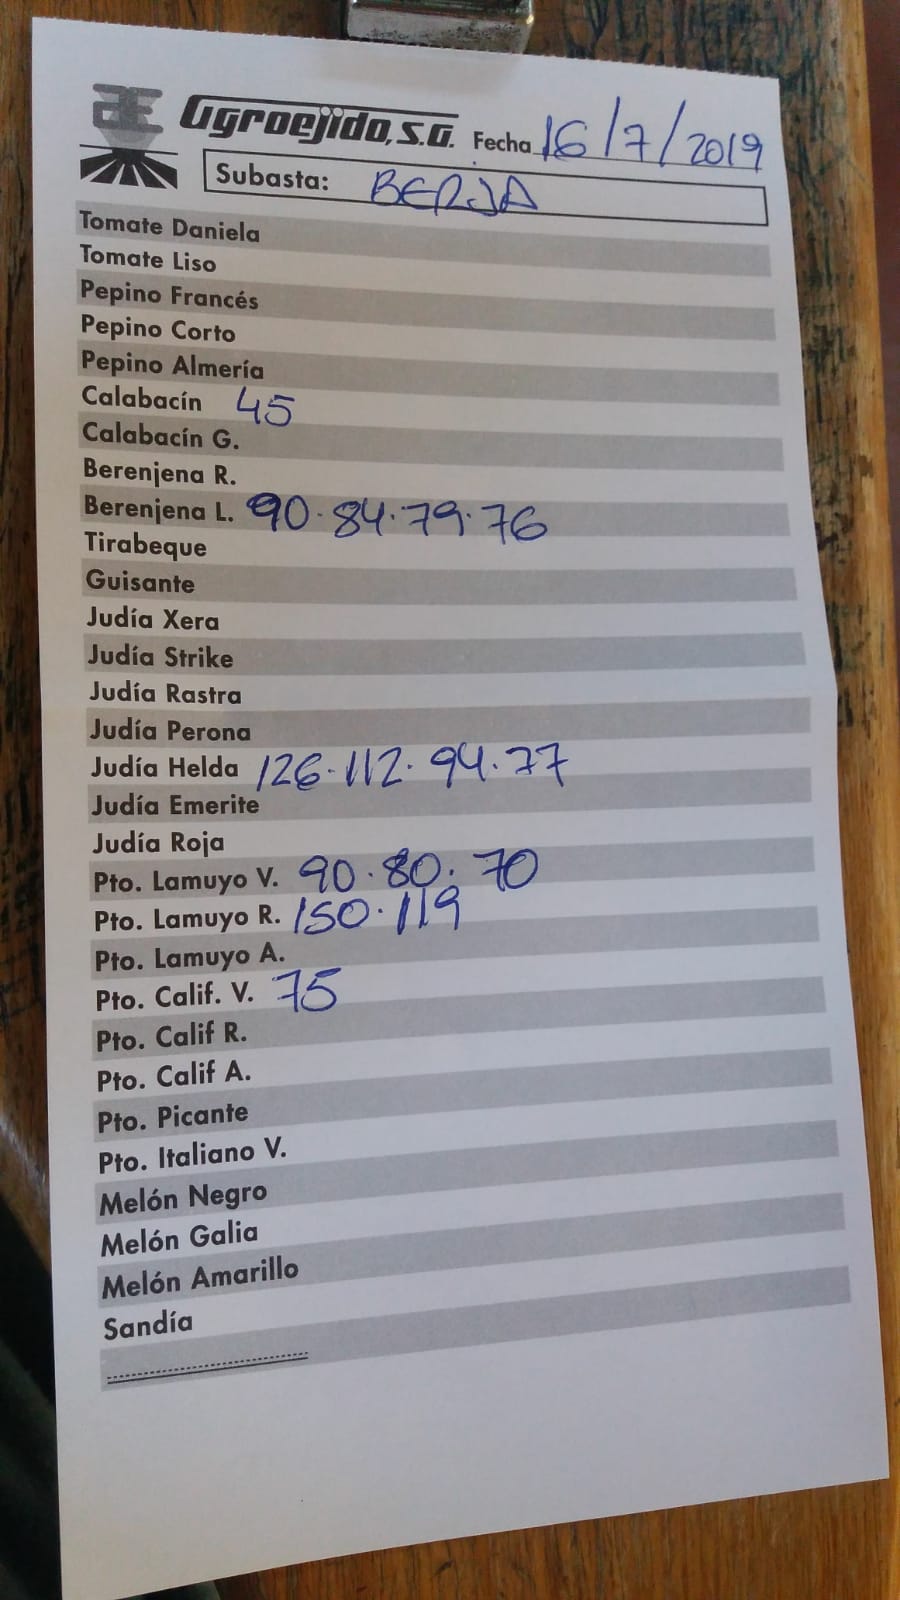 AE Agroejido, S.A. Fecha 16/7/2019
Subasta: BERJA
Tomate Daniela
Tomate Liso
Pepino Francés
Pepino Corto
Pepino Almería
Calabacín 45
Calabacín G.
Berenjena R.
Berenjena L. 90·84·79·76
Tirabeque
Guisante
Judía Xera
Judía Strike
Judía Rastra
Judía Perona
Judía Helda 126·112·94·77
Judía Emerite
Judía Roja
Pto. Lamuyo V. 90·80·70
Pto. Lamuyo R. 150·119
Pto. Lamuyo A.
Pto. Calif. V. 75
Pto. Calif R.
Pto. Calif A.
Pto. Picante
Pto. Italiano V.
Melón Negro
Melón Galia
Melón Amarillo
Sandía